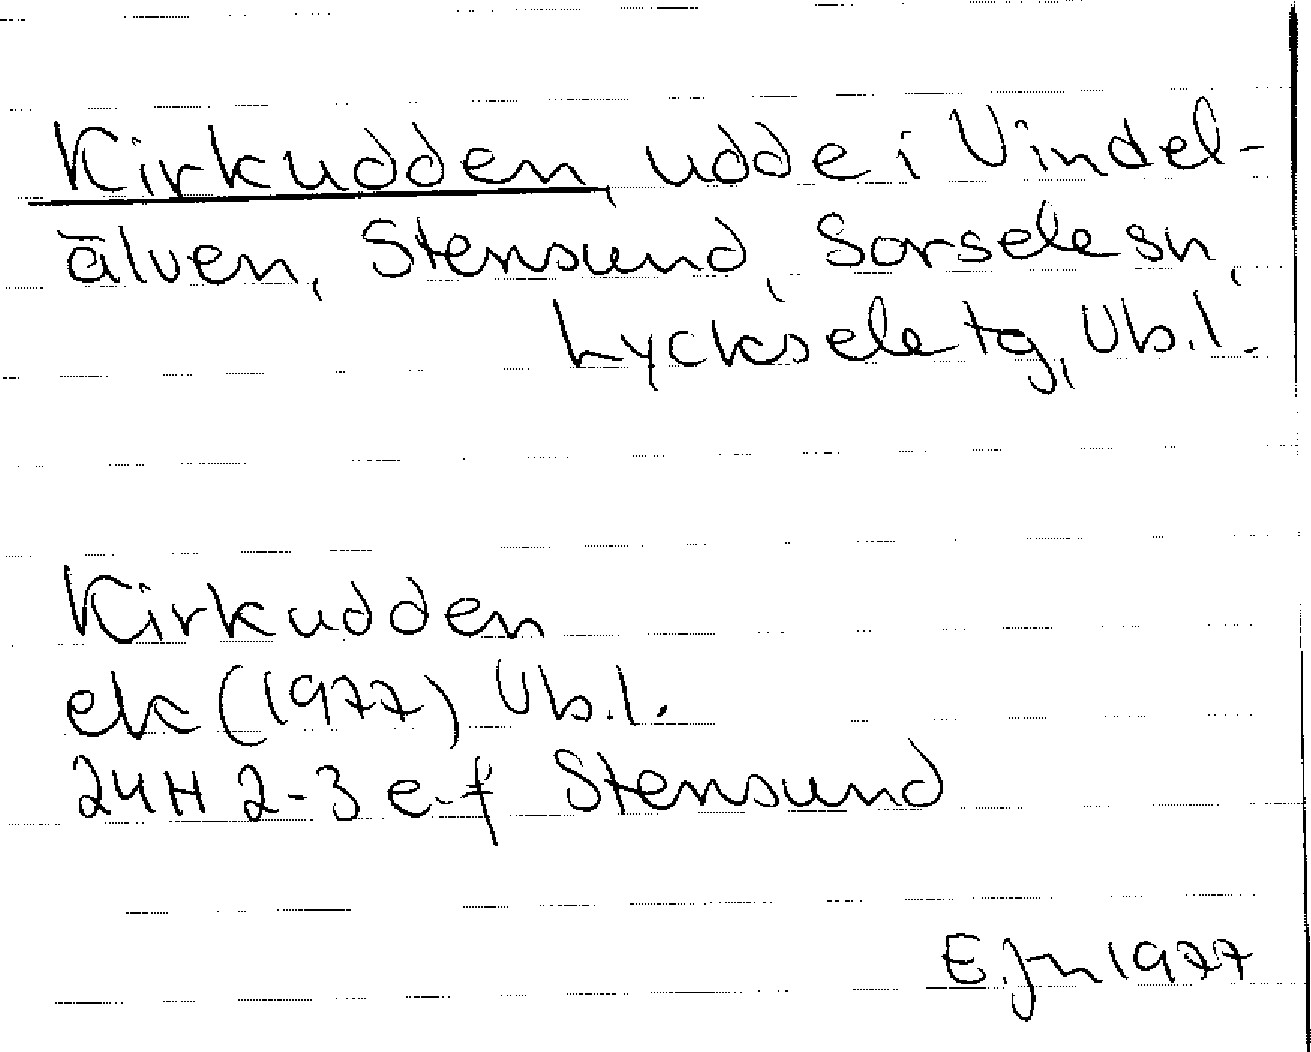 Kirkudden, udde i Vindel-
älven, Stensund, Sorsele sn,
Lycksele tg, Vb.l.
Kirkudden
ek (1977) Vb.l.
24H 2-3 e-f Stensund
E.Jn 1977